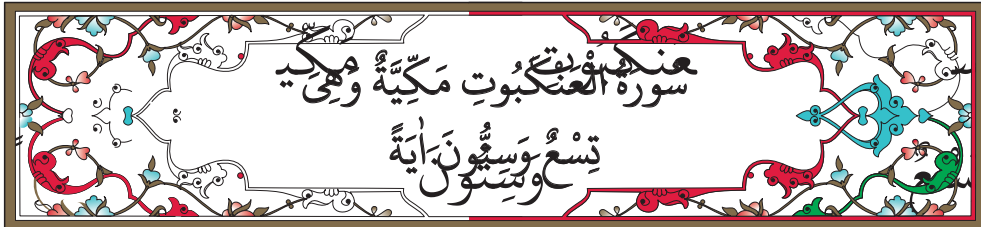 سُورَةُ الْعَنْكَبُوتِ مَكِّيَّةٌ وَهِيَ
تِسْعٌ وَسِتُّونَ اٰيَةً